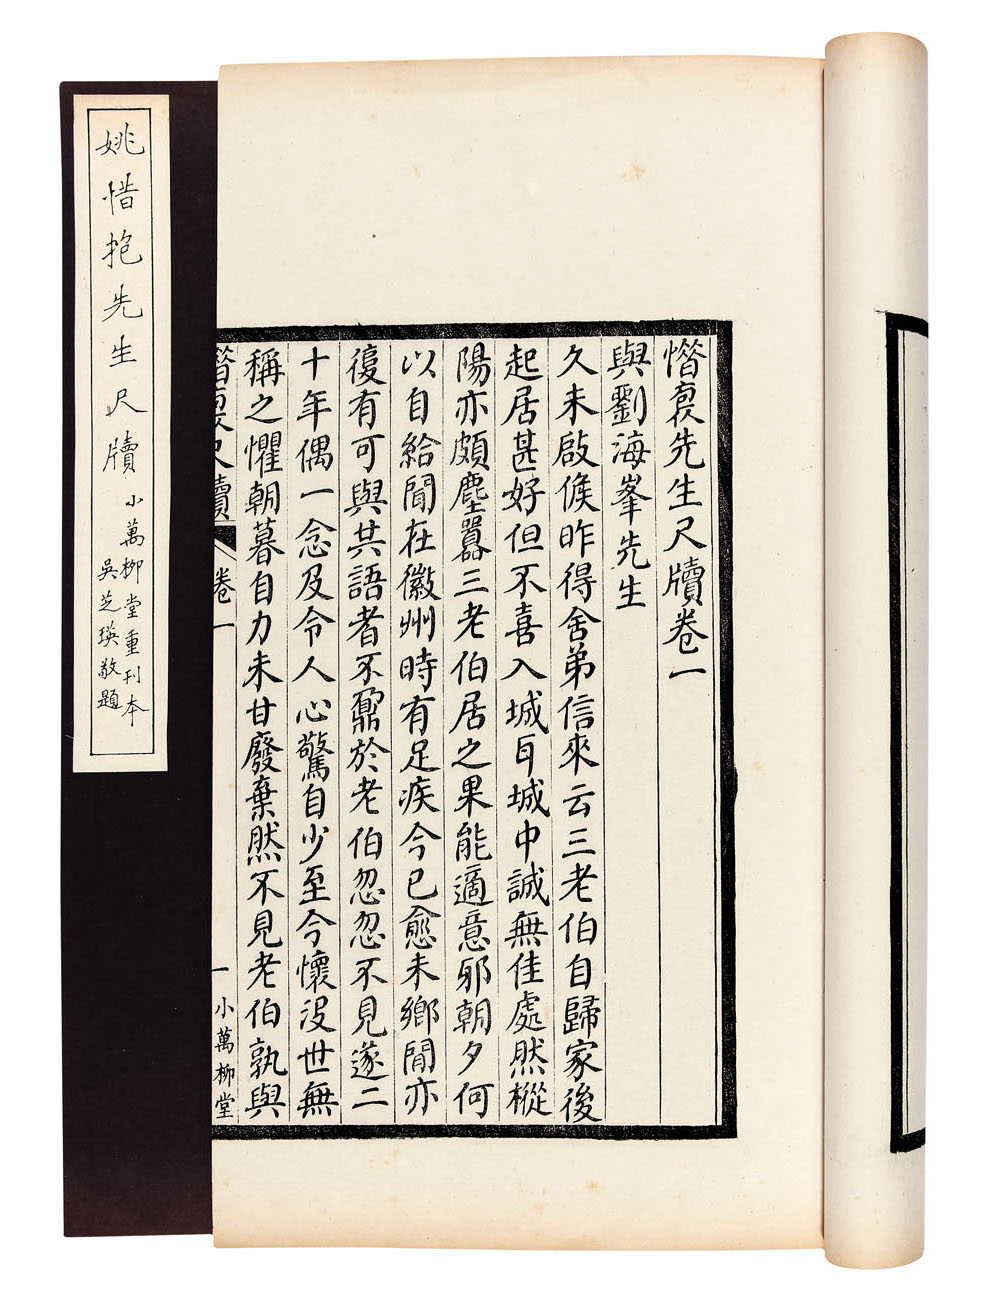 姚惜抱先生尺牘
小萬柳堂重刊本
吳芝瑛敬題
惜袌先生尺牘卷一
與劉海峯先生
久未啟候昨得舍弟信來云三老伯自歸家後
起居甚好但不喜入城耳城中誠無佳處然樅
陽亦頗塵囂三老伯居之果能適意邪朝夕何
以自給聞在徽州時有足疾今已愈未鄉閒亦
復有可與共語者不鼐於老伯忽忽不見遂二
十年偶一念及令人心驚自少至今懷沒世無
稱之懼朝暮自力未甘廢棄然不見老伯孰與
惜袌尺牘 卷一 一 小萬柳堂